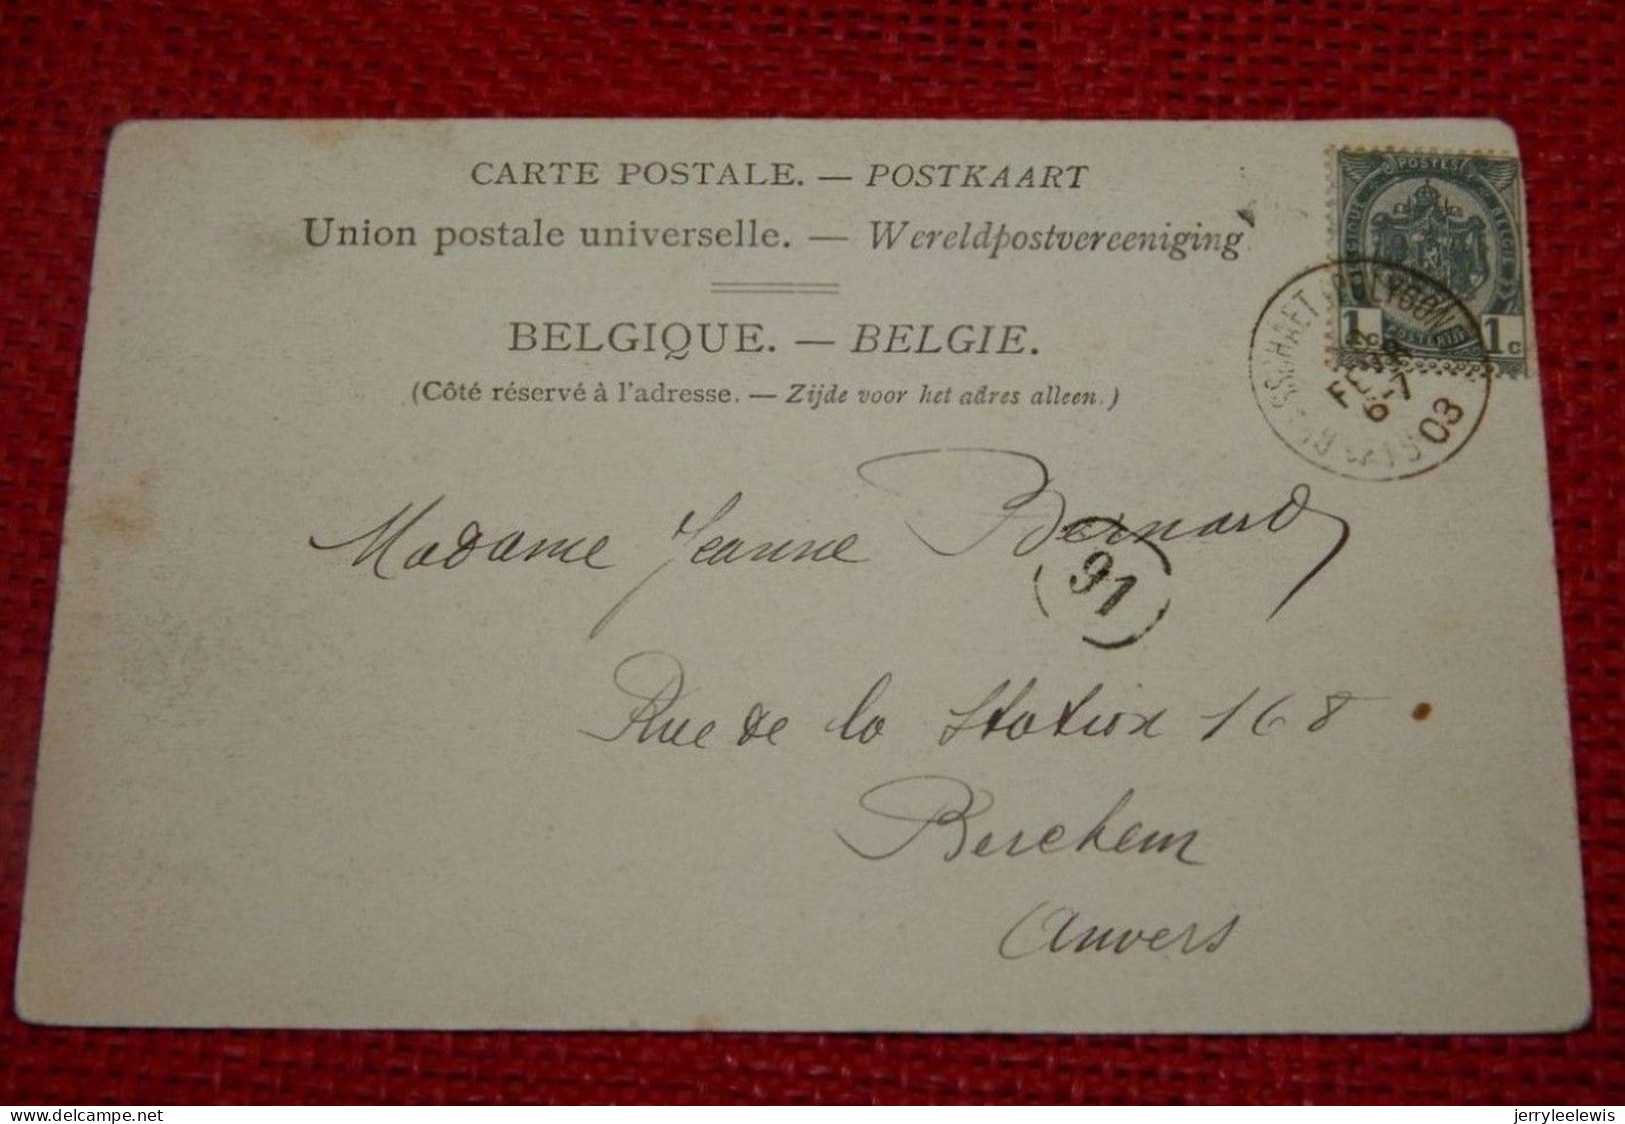 CARTE POSTALE. — POSTKAART
Union postale universelle. — Wereldpostvereeniging
BELGIQUE. — BELGIE.
(Côté réservé à l'adresse. — Zijde voor het adres alleen.)
POSTES
BELGIQUE BELGIE
1c POSTERIJEN 1c
FEVR
6-7
03
Madame Jeanne Bernard
91
Rue de la Station 168
Berchem
Anvers
delcampe.net
jerryleelewis